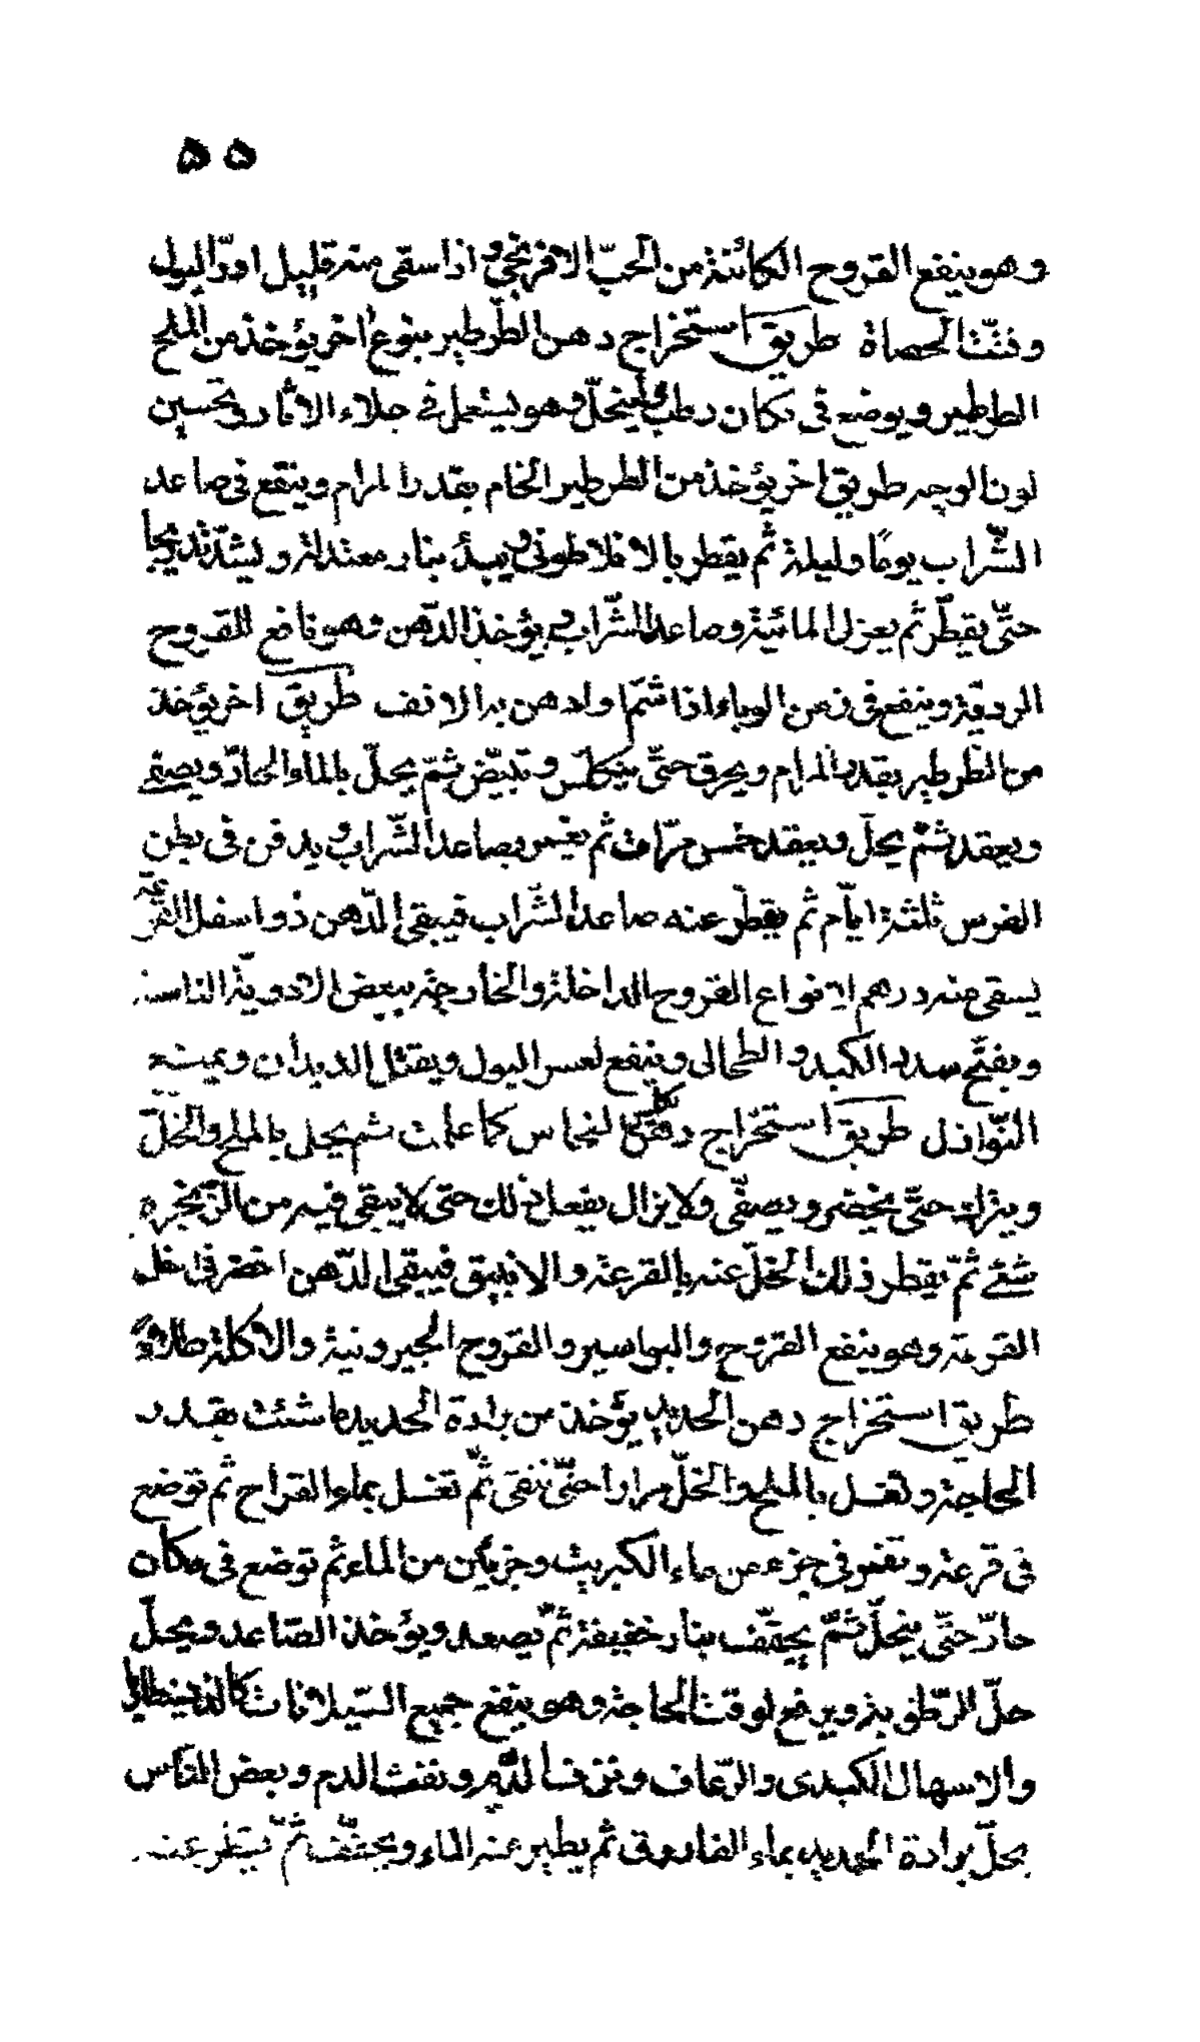 ٥٥
وهو ينفع القروح الكائنة من الحبّ الافرنجي واذا سقى منه قليل ادرّ البول
وفتّت الحصاة طريق استخراج دهن الطّرطير بنوع اخر يؤخذ من الملح
الطرطير ويوضع فى مكان رطب فينحلّ وهو يستعمل فى جلاء الاثار وتحسين
لون الوجه طريق اخر يؤخذ من الطرطير الخام بقدر المرام وينقع فى صاعد
الشّراب يومًا وليلة ثم يقطر بالافلاطونى ويبدأ بنار معتدلة ويشتدّ تدريجا
حتّى يقطّر ثم يعزل المائية وصاعد الشّراب ويؤخذ الدّهن وهو نافع للقروح
الرديّة وينفع فى زمن الوباء اذا شمّ اولدهن به الانف طريق اخر يؤخذ
من الطرطير بقدر المرام ويحرق حتّى يتكلّس وتبيّض ثمّ يحلّ بالماء الحارّ ويصفّى
ويعقد ثمّ يحلّ ويعقد خمس مرّات ثم يغمر بصاعد الشّراب ويدفن فى بطن
الفرس ثلثة ايّام ثم يقطّر عنه صاعد الشّراب فيبقى الدّهن فى اسفل القرعة
يسقى منه درهم لانواع القروح الداخلة والخارجة ببعض الادويّة المناسبة
ويفتّح سدد الكبد والطحال وينفع لعسر البول ويقتل الديدان ويمنع
النّوازل طريق استخراج دهن النحاس كلّس النحاس كما علمت ثم يحل بالملح والخلّ
ويترك حتّى يخضر ويصفّى ولا يزال يفعل ذلك حتى لا يبقى فيه من الزّنجره
شئ ثمّ يقطر ذلك الخلّ عنه بالقرعة والانبيق فيبقى الدّهن اخضر فى اسفل
القرعة وهو ينفع القروح والبواسير والقروح الجيرونية والاكلة طلاءً
طريق استخراج دهن الحديد يؤخذ من برادة الحديد ما شئت بقدر
الحاجة وتغسل بالملح والخلّ مرارا حتّى تنقى ثمّ تغسل بماء القراح ثم توضع
فى قرعة وتغمر فى جزء من ماء الكبريت وجزئين من الماء ثم توضع فى مكان
حارّ حتّى ينحلّ ثمّ يجفّف بنار خفيفة ثمّ يصعد ويؤخذ الصّاعد ويحلّ
حلّ الرّطوبة ويرفع لوقت الحاجة وهو ينفع جميع السّيلانات كالذوسنطاريا
والاسهال الكبدى والرّعاف ونزف الدّم ونفث الدم وبعض النّاس
يحلّ برادة الحديد بماء الفاروق ثم يطير عنه الماء ويجفّف ثمّ يستقطر عنه